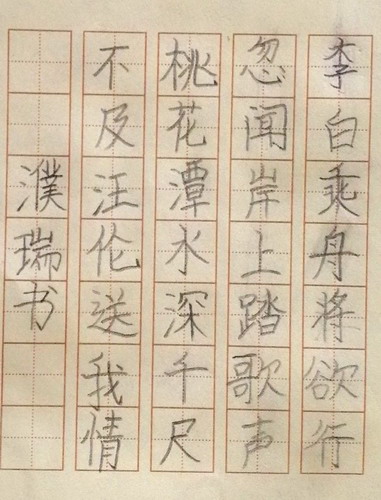 李白乘舟将欲行
忽闻岸上踏歌声
桃花潭水深千尺
不及汪伦送我情
濮瑞书